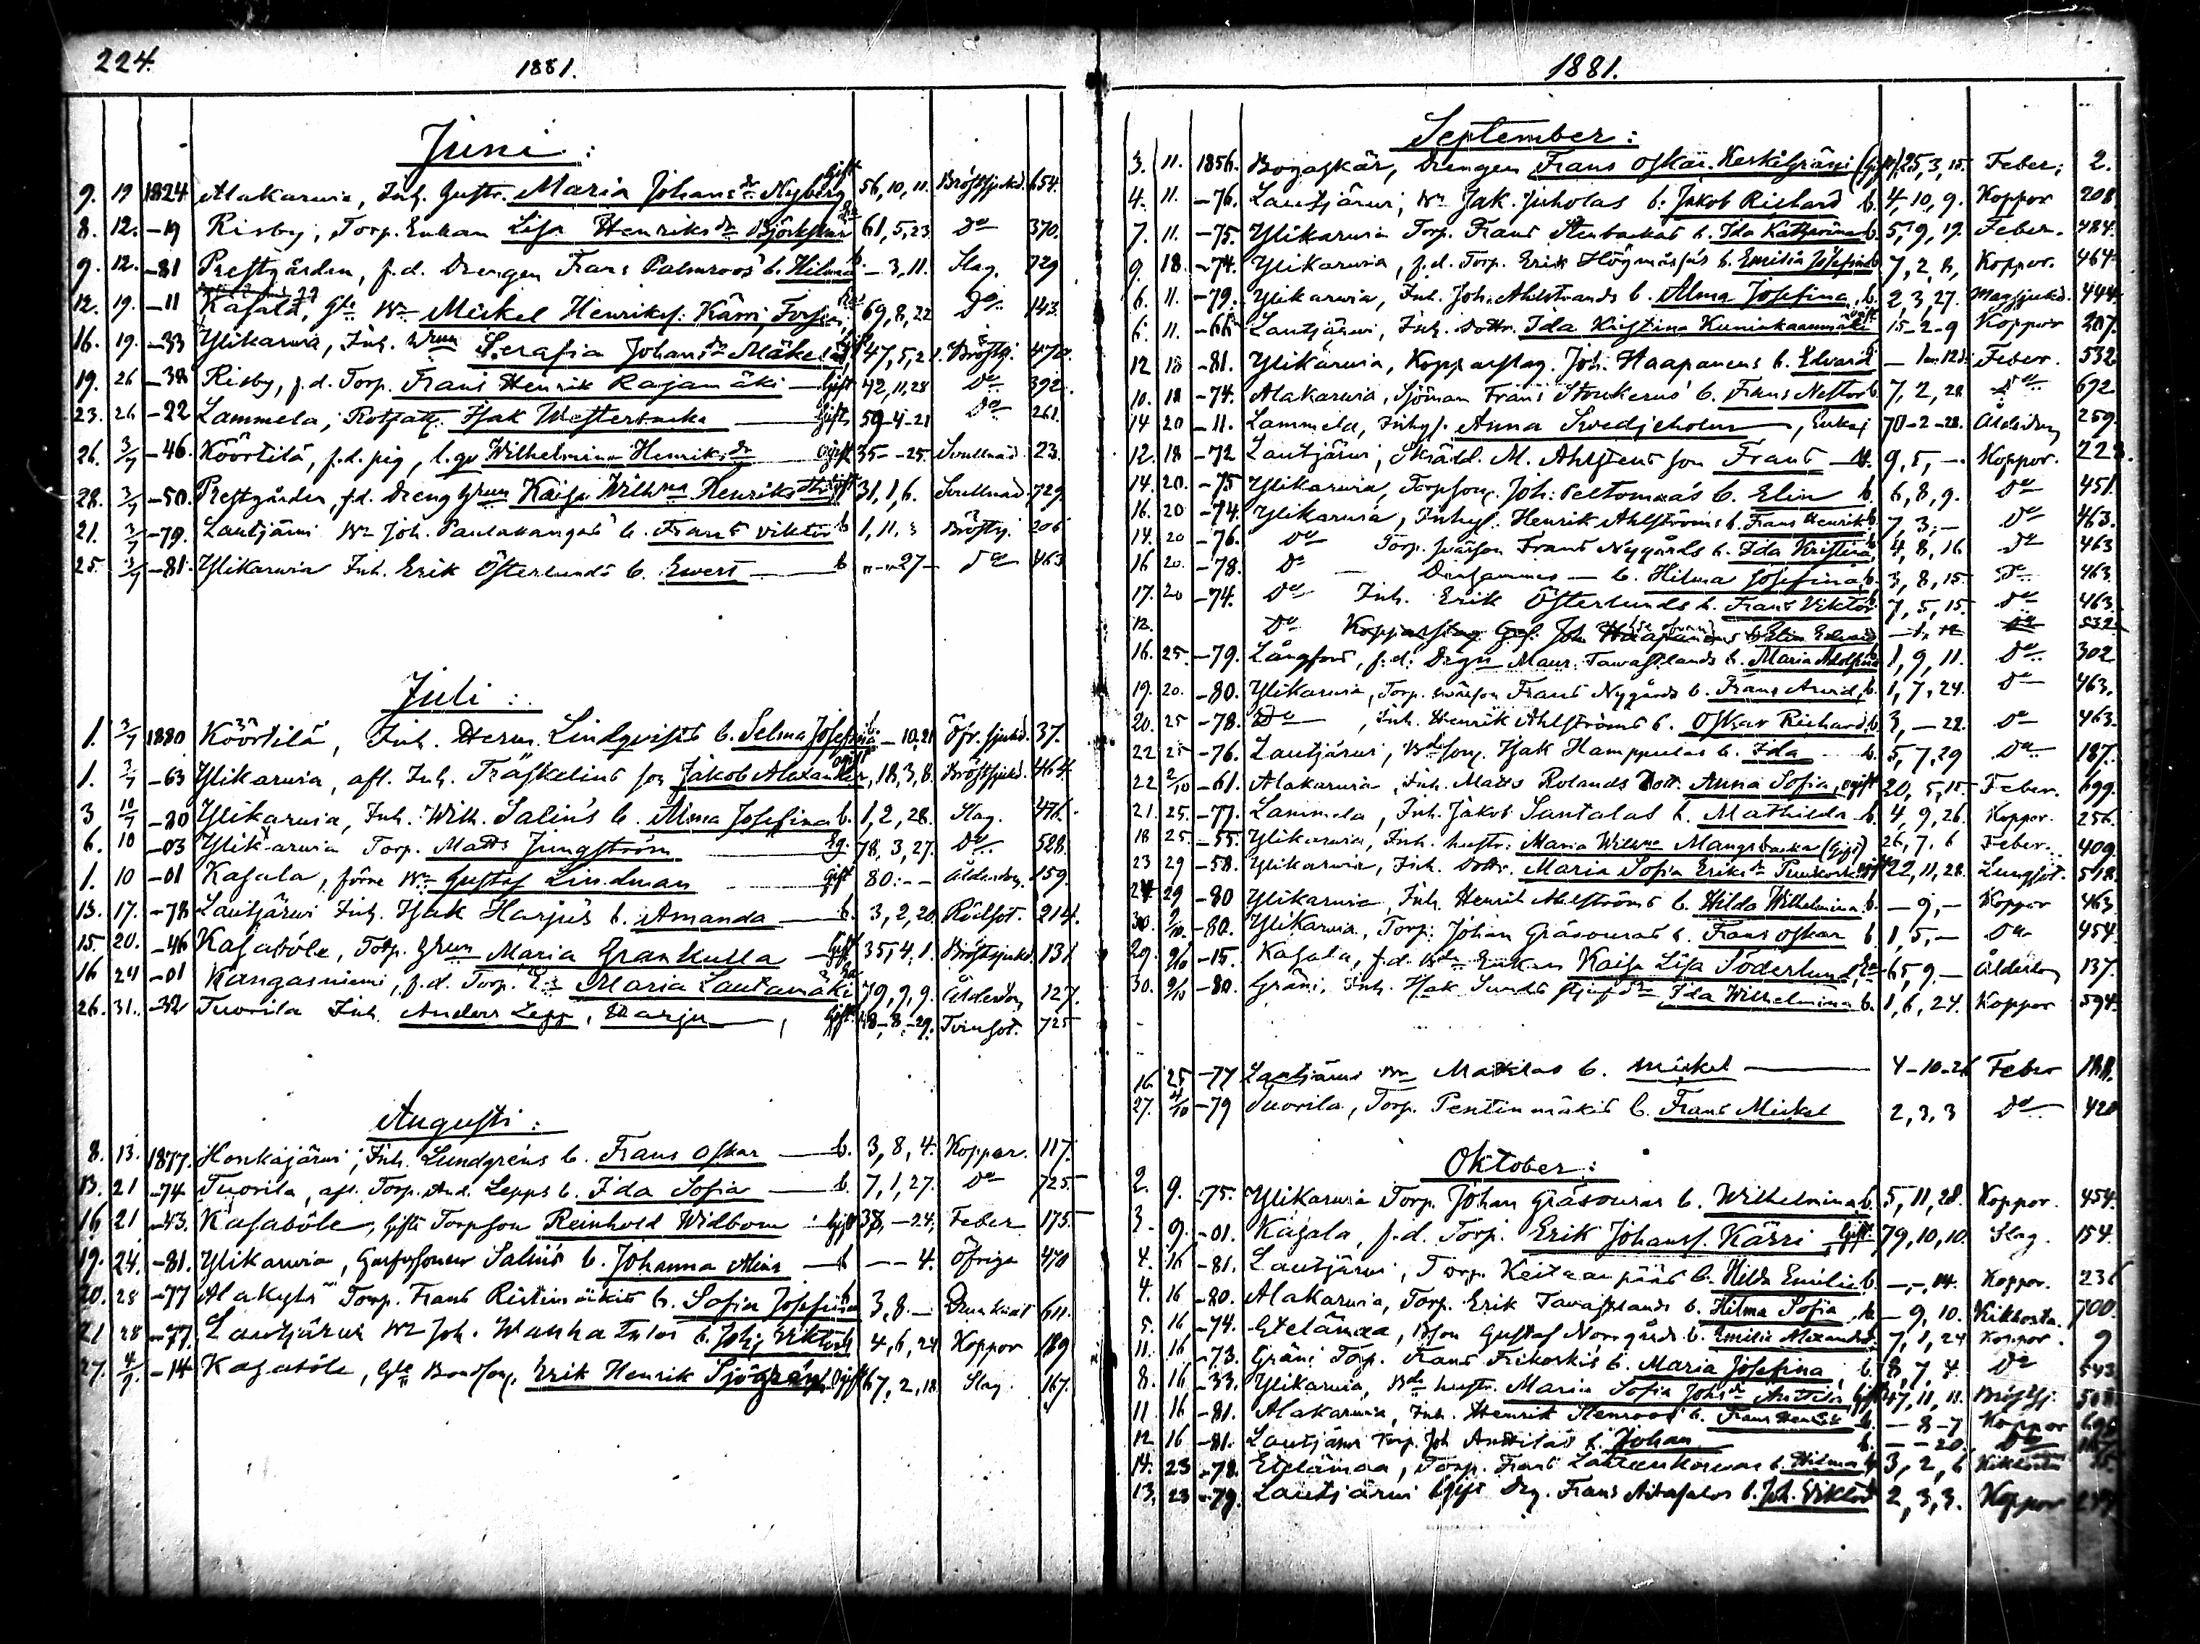 224.
1881.
Juni:
9. 19 1824 Alakarwia, Inh. Hustr. Maria Johansdr Nyberg Gift 56,10,11. Bröstsjukd. 654.
8. 12. -19 Risby, Torp. Enkan Lisa Henriksdr 61,5,23 Do 370.
9. 12. -81 Prestgården, f.d. Drengen Frans Palmroos' b. Hilma -3,11. Slag. 729
12. 19. -11 Kasala, Gle Bn Mickel Henrikss. Kärri, 69,8,22 Do. 143.
16. 19. -33 Ylikarwia, Inh. Serafia Johansdr 47,5,2 Bröstsj. 470.
19. 26 -38 Risby, f.d. Torp. Frans Henrik Rajamäki — Gift 42,11,28 Do 392.
23. 26 -22 Lammela, Isak Westerbacka — Gift 59-4-21 Do 261.
26. 3/7 -46. Köörtilä, f.d. pig, Wilhelmina Henriksdr Ogift 35--25. 23.
28. 3/7 -50. Prestgården, f.d. Dreng Kaisa Wilhma Henriksdr 31,1,6. 729
21. 3/7 -79. Lautjärwi Bn Joh. b. Frans Viktor b 1,11,3 Bröstsj. 206
25. 3/7 -81. Ylikarwia Inh. Erik Österlunds b. Ewert — b "-"27- do 463
Juli:
1. 3/7 1880 Köörtilä, Inh. Herm. Lindqvists b. Selma Josefina -10,21 Öfr. sjukd. 37.
1. 3/7 -63 Ylikarwia, afl. Inh. Träskelins son Jakob Alexander, 18,3,8. Bröstsjukd. 464.
3 10/7 -80 Ylikarwia, Inh. Wilh. Salins b. Alma Josefina b. 1,2,28. Slag. 476.
6. 10 -03 Ylikarwia Torp. Matts Ljungström 78,3,27. Do. 528.
1. 10 -01 Kasala, förre Bn Gustaf Lindman Gift 80:-- Ålderdom. 159.
13. 17. -78 Lautjärwi Inh. Isak Harjus b. Amanda — b. 3,2,20. Rödsot. 214.
15. 20. -46 Kasaböle, Torp. Maria Grankulla — Gift 35,4,1. Bröstsjukd. 131
16 24 -01 Kangasniemi, f.d. Torp. Maria Lautamäki 79,9,9. Ålderdom 127.
26. 31. -32 Tuorila Inh. Anders Lepp, Harju, Gift 48-8-29. Twinsot. 725
Augusti:
8. 13. 1877. Honkajärwi, Inh. Lundgrens b. Frans Oskar — b. 3,8,4. Koppor. 117.
13. 21 -74 Tuorila, afl. Torp. And. Lepps b. Ida Sofia — b. 7,1,27. Do 725.
16. 21 -43. Kasaböle, Gifte Torpson Reinhold Widbom Gift 38,-24. Feber 175.
19. 24. -81. Ylikarwia, Salins b. Johanna — b -- 4. Öfriga 470
20. 28 -77 Alakylä Torp. Frans Ristimäkis b. Sofia Josefina 3,8.— 611.
21 28 -77. Lautjärwi Bn Joh. Wanhatalos b. Joh. Viktor b 4,6,24 Koppor 189
27. 4/9. -14 Kasaböle, Gle Bondson, Erik Henrik Sjögren Gift 67,2,18 Slag. 167.
1881.
September:
3. 11. 1856. Bogaskär, Drengen Frans Oskar Keskigräni (Gift) 25,3,15. Feber; 2.
4. 11. -76. Lautjärwi, Bn Jak. Juholas b. Jakob Richard b. 4,10,9. Koppor 208
7. 11. -75. Ylikarwia Torp. Frans Stenbackas b. Ida Katharina b. 5,9,19. Feber. 484.
9. 18. -74. Ylikarwia, f.d. Torp. Erik b. Emilia Josefina b 7,2,8, Koppor. 464.
6. 11. -79. Ylikarwia, Inh. Joh. Ahlstrands b. Alma Josefina, b. 2,3,27. Magsjukd. 444.
6. 11. -66 Lautjärwi, Inh. Dottr. Ida Kristina 15-2-9 Koppor 207.
12 18 -81. Ylikarwia, Kopparslag. Joh. Haapanens b. Edvard — Feber. 532
10. 18 -74. Alakarwia, Sjöman Frans Stenkerus' b. Frans Nestor b. 7,2,28 Do 692
14 20 -11. Lammela, Inhys. Anna Swedjeholm, Enka 70-2-28. Ålderdom 259.
12. 18 -72 Lautjärwi, Skrädd. M. Ahlstens son Frans — b. 9,5,-. Koppor. 223.
14. 20. -75 Ylikarwia, Torpson. Joh. Peltomaas b. Elin b. 6,8,9. Do 451.
16. 20 -74. Ylikarwia, Inhys. Henrik Ahlströms b. Frans Henrik b. 7,3,- Do 463.
14. 20 -76. Do Torp. swärson Frans Nygårds b. Ida Kristina, 4,8,16 Do 463
16 20. -78. Do — Densammes — b. Hilma Josefina, b. 3,8,15. Do 463.
17. 20 -74. Do Inh. Erik Österlunds b. Frans Viktor 7,5,15. Do 463.
12. Do Kopparslag. Joh. Haapanens b. Edvard Do 532
16. 25. -79. Långfors, f.d. Drgn Maur. Tawastlands b. Maria Adolfina 1,9,11. Do 302
19. 20. -80. Ylikarwia, Torp. swärson Frans Nygårds b. Frans Arvid, b. 1,7,24. Do 463.
20. 25 -78. Do, Inh. Henrik Ahlströms b. Oskar Richard, b. 3,-22. Do 463.
22 25 -76. Lautjärwi, Bdeson. Isak Hamppulas b. Ida b. 5,7,29 Do 187.
22 2/10 -61. Alakarwia, Inh. Matts Rolands Dott. Anna Sofia, ogift 20,5,15. Feber. 699.
21. 25. -77. Lammela, Inh. Jakob Santalas b. Mathilda b. 4,9,26. Koppor. 256.
18 25. -55. Ylikarwia, Inh. hustr. Maria Wilhma Mangsbacka (Gift) 26,7.6 Feber. 409.
23 29 -58. Ylikarwia, Inh. Dottr. Maria Sofia Eriksdr 22,11,28. Lungsot. 518.
24 29 -80 Ylikarwia, Inh. Henrik Ahlströms b. Hilda Wilhelmina b. -9,- Koppor 463
30. 9/10. -80. Ylikarwia, Torp. Johan Gråsouras b. Frans Oskar b 1,5,- Do 454
29. 9/10 -15. Kasala, f.d. Bde Enkan Kaisa Lisa Söderlund, 65,9- Ålderdom 137.
30. 9/10 -80. Gräni, Inh. Isak Sunds Ida Wilhelmina b. 1,6,24. Koppor 594.
16. 25 -77 Lautjärwi Bn Mattilas b. Mickel — 4-10-26 Feber 188.
27. 4/10 -79 Tuorila, Torp. Pentinmäkis b. Frans Mickel 2,3,3 Do 420
Oktober:
2. 9. -75. Ylikarwia Torp. Johan Gråsouras b. Wilhelmina b. 5,11,28. Koppor. 454.
3. 9. -01. Kasala, f.d. Torp. Erik Johanss. Kärri, Gift. 79,10,10. Slag. 154.
4. 16 -81. Lautjärwi, Torp. Keitaanpääs b. Hilda Emilia b. -,-,14. Koppor. 236
4. 16 -80. Alakarwia, Torp. Erik Tawastlands b. Hilma Sofia b. -9,10. Kikhosta. 700.
5. 16 -74. Etelämaa, Bson Gustaf Norrgårds b. Emilia Alexandra 7,1,24 Koppor. 9
11. 16 -73. Gräni Torp. Frans Frikorkis b. Maria Josefina, b. 8,7,4 Do 543
8. 16 -33. Ylikarwia, Bde hustr. Maria Sofia Johsdr Anttila Gift 47,11,11. Bröstsj. 508
11. 16 -81. Alakarwia, Inh. Henrik Stenroos' b. Frans Henrik b. -8-7 Koppor 696
12 16 -81. Lautjärwi Torp. Joh Anttilas b. Johan b. --20. Do
14. 23 -78. Etelämaa, Torp. Frans b. Hilma b 3,2,6 Kikhosta
13. 23 -79. Lautjärwi Gift Drg. Frans Aitasalos b. Joh. Viktor 2,3,3. Koppor